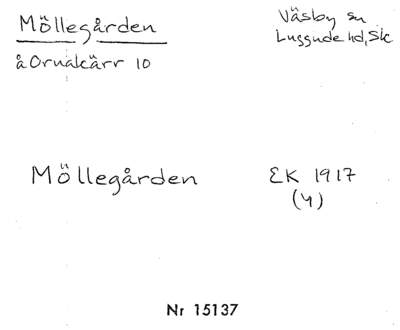 Möllegården
Väsby sn
å Ornakärr 10
Luggude hd, Sk
Möllegården
EK 1917
(4)
Nr 15137